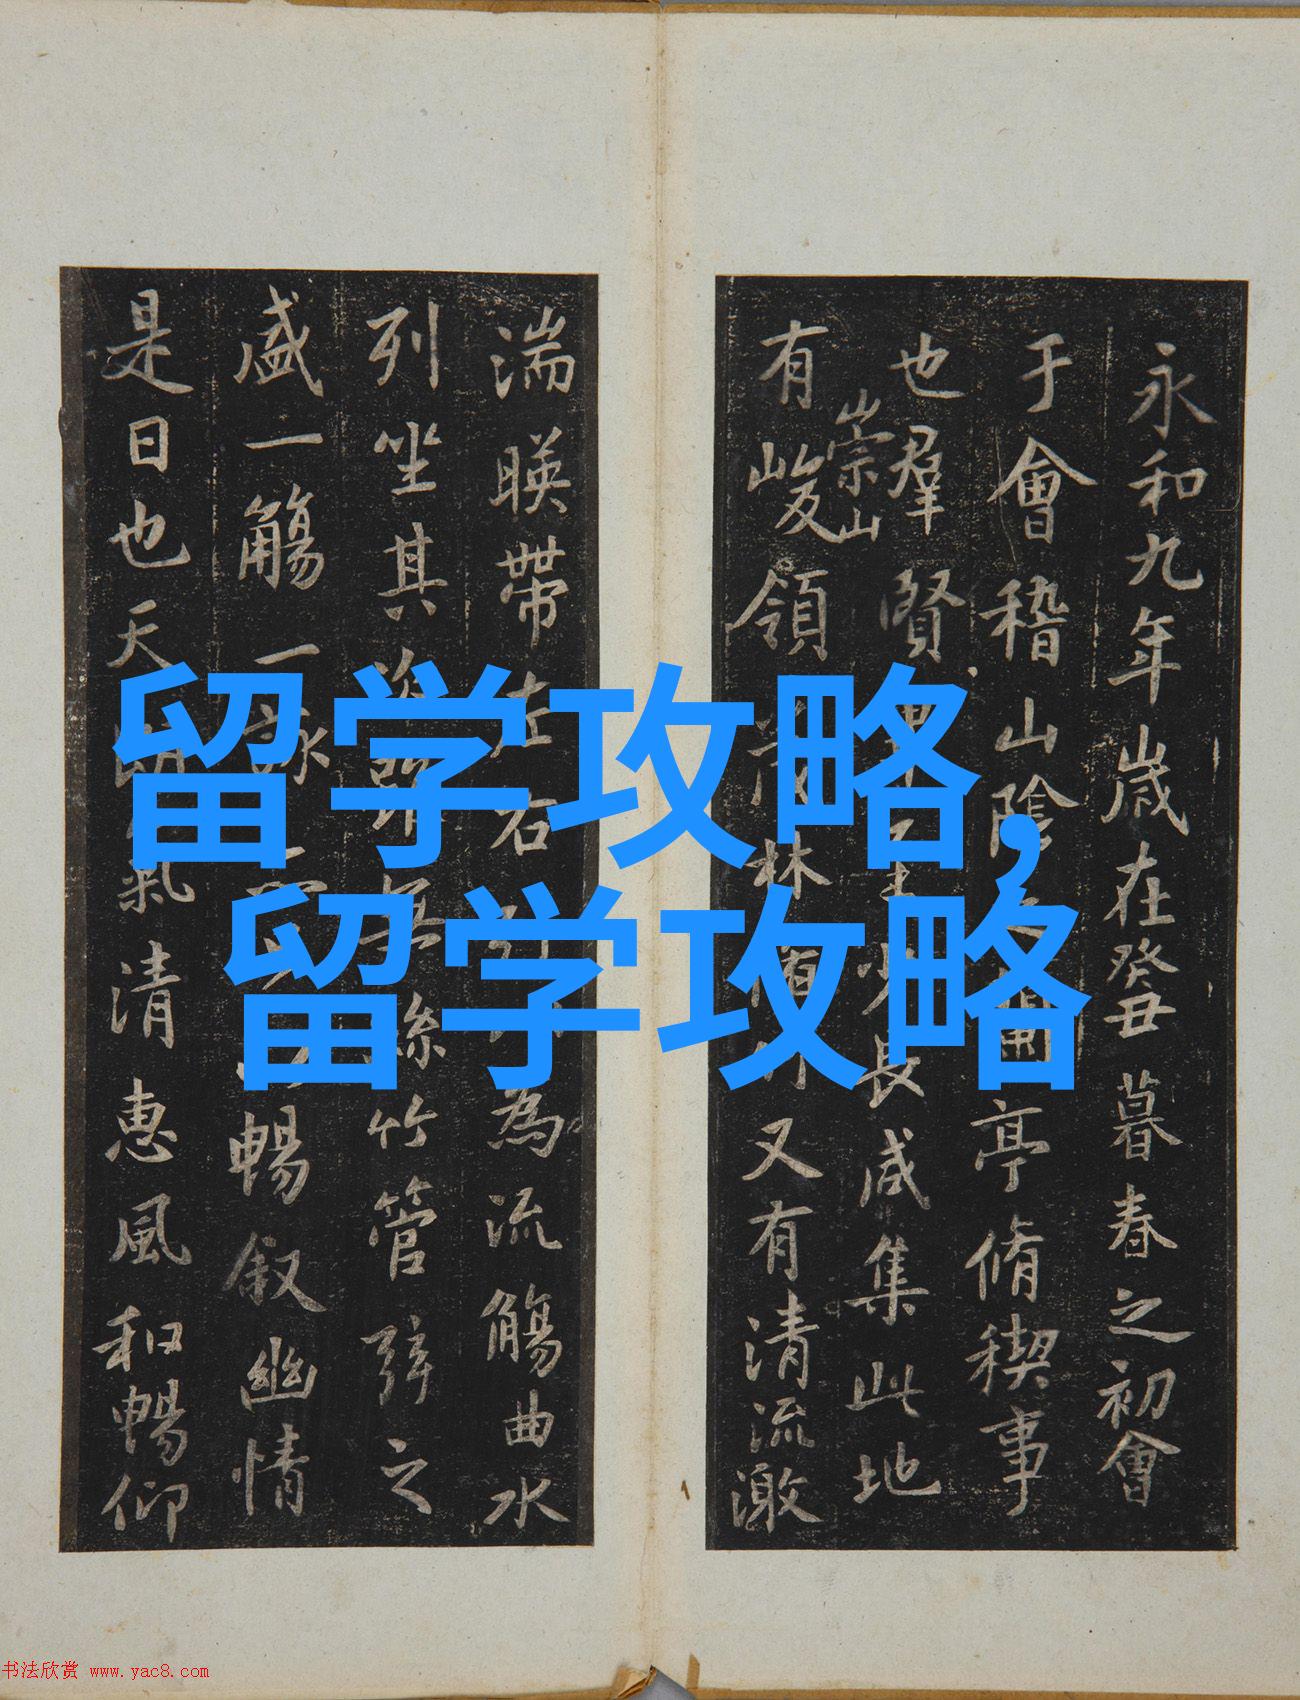 留学攻略,
留学攻略
永和九年歳在癸丑暮春之初會
于會稽山陰之蘭亭脩稧事
也羣賢畢至少長咸集此地
崇山
有峻領茂林脩竹又有清流激
湍暎帶左右為流觴曲水
列坐其次雖無絲竹管弦之
盛一觴一詠暢叙幽情
是日也天朗氣清惠風和暢仰
书法欣赏 www.yac8.com